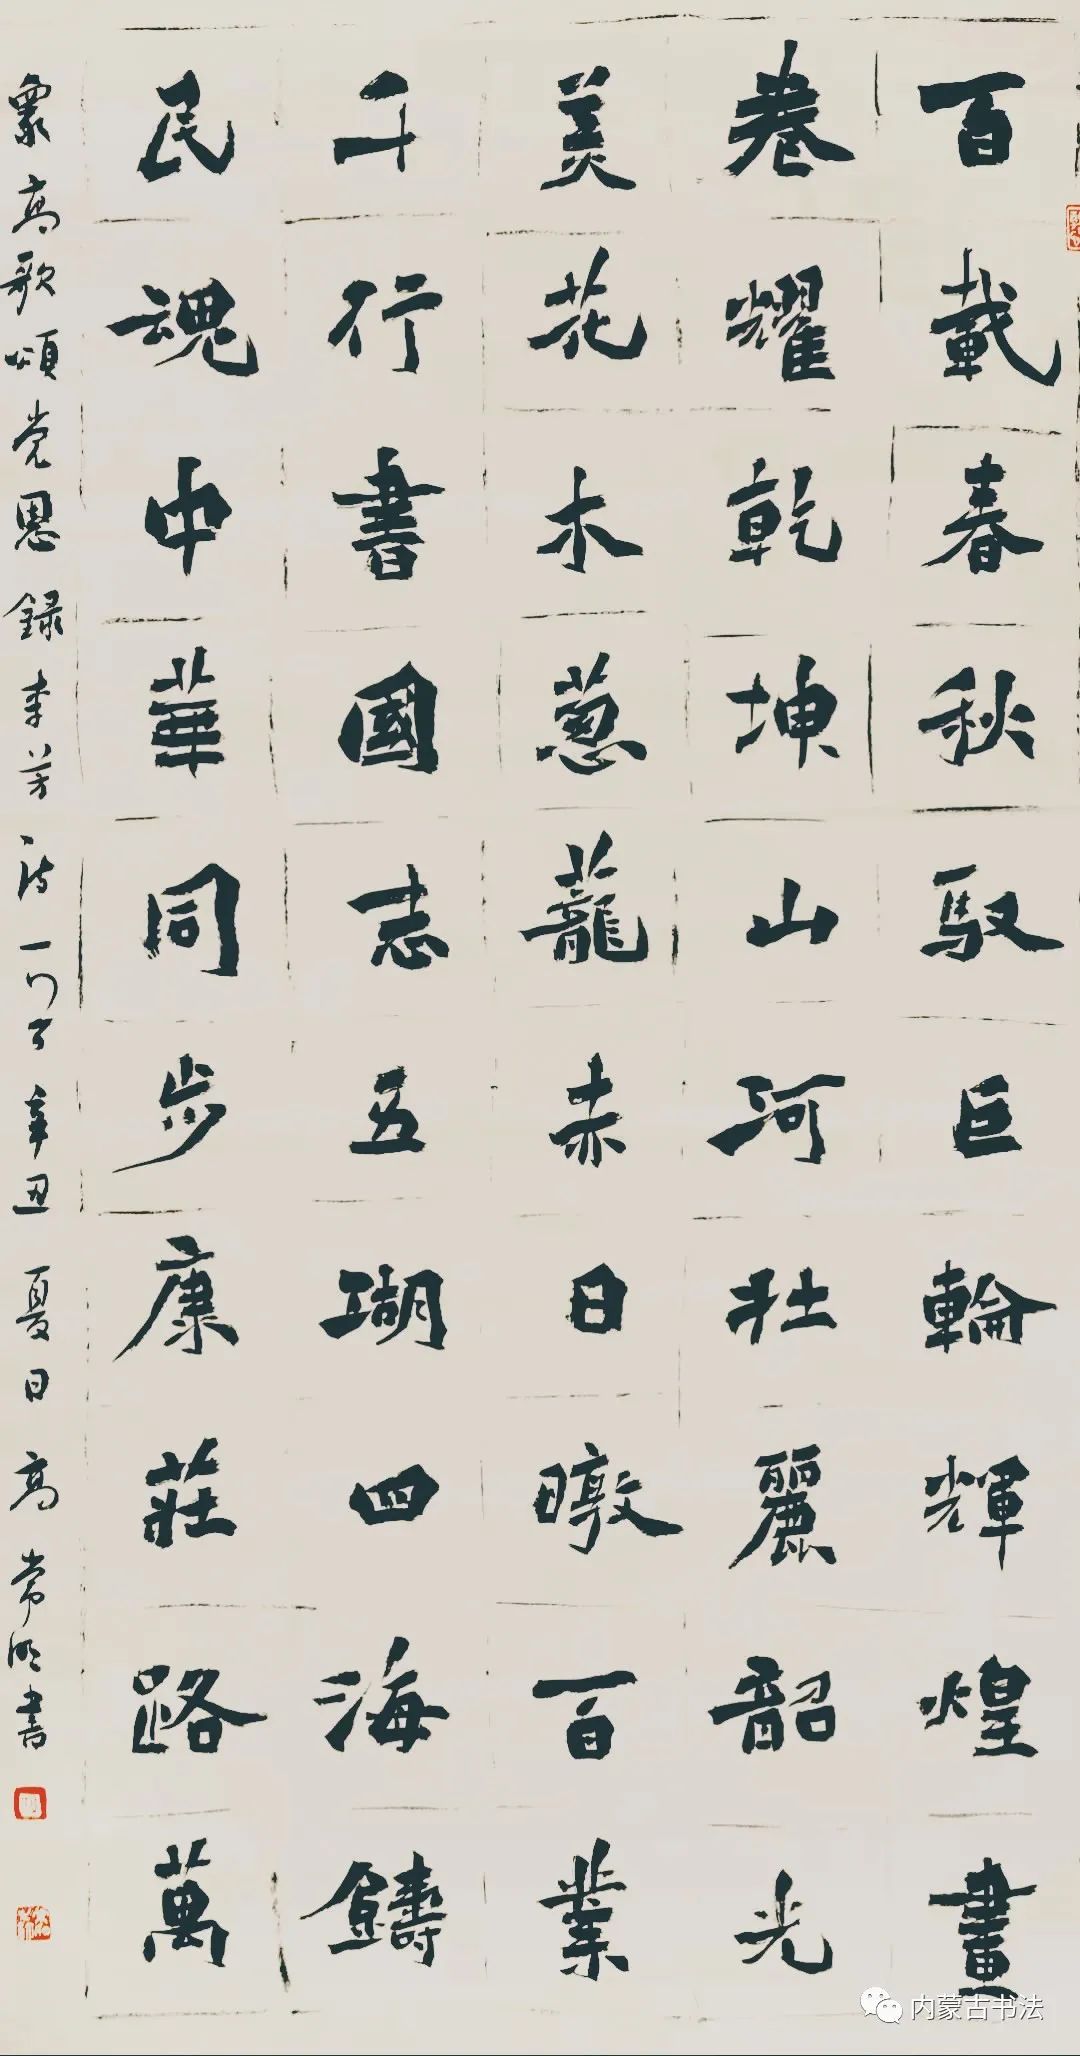 百載春秋馭巨輪輝煌畫
卷耀乾坤山河壯麗韶光
美花木蔥蘢赤日暾百業
千行書國志五湖四海鑄
民魂中華同步康莊路萬
眾高歌頌党恩 錄李芳詩一首 辛丑夏日 高常明書
内蒙古书法